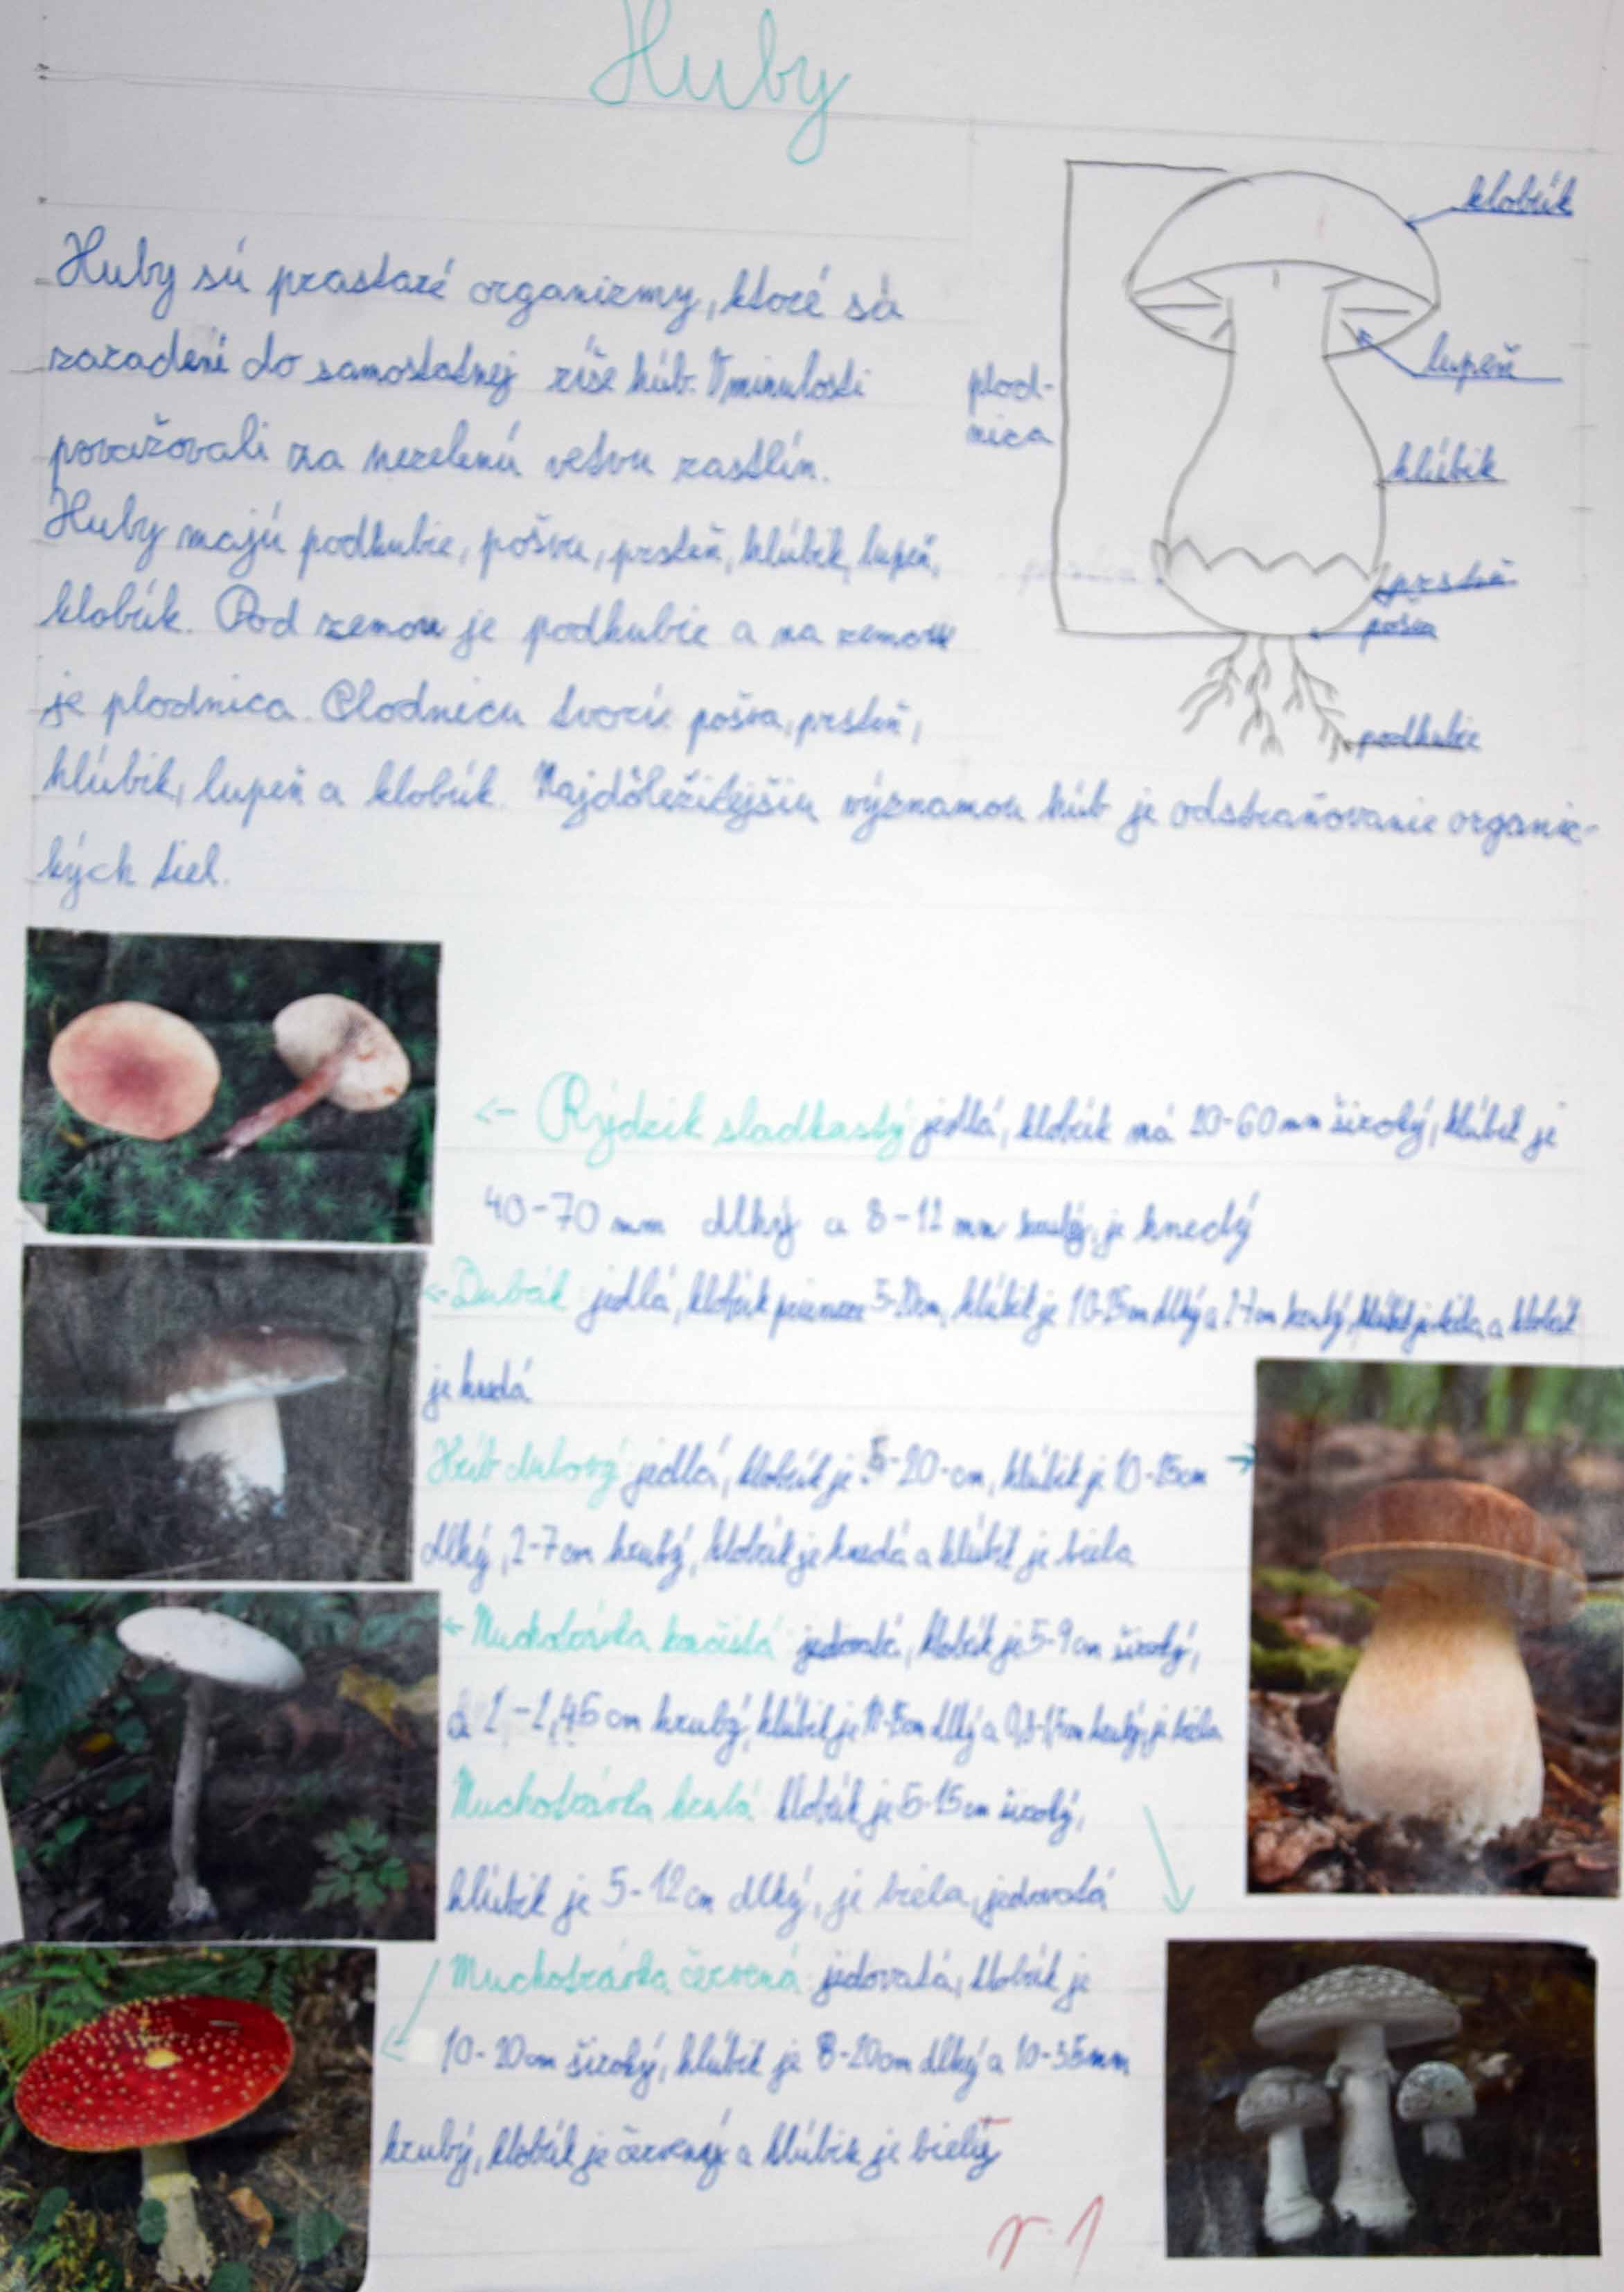 Huby
klobúk
Huby sú prastaré organizmy, ktoré sú
zaradené do samostatnej ríše húb. V minulosti
lupeň
plod-
nica
považovali za nezelenú vetvu rastlín.
hlúbik
Huby majú podhubie, pošvu, prsteň, hlúbik, lupeň,
prsteň
klobúk. Pod zemou je podhubie a na zemou
pošva
je plodnica. Plodnicu tvorí: pošva, prsteň,
podhubie
hlúbik, lupeň a klobúk. Najdôležitejšiu významou húb je odstraňovanie organic-
kých tiel.
<- Rýdzik sladkastý jedlá, klobúk má 20-60 mm široký, hlúbik je
40-70 mm dlhý a 8-12 mm hrubý, je hnedý
<- Dubák jedlá, klobúk 5-20cm, hlúbik je 10-25cm dlhý a 2-7cm hrubý, hlúbik je biela a klobúk
je hnedá
Hríb dubový jedlá, klobúk je 5-20-cm, hlúbik je 10-25cm ->
dlhý, 2-7cm hrubý, klobúk je hnedá a hlúbik je biela
<- Muchotrávka končistá jedovatá, klobúk je 5-9cm široký,
hrubý, hlúbik je dlhý a hrubý, je biela
Muchotrávka hrubá klobúk je 5-15cm široký,
hlúbik je 5-12cm dlhý, je biela, jedovatá
Muchotrávka červená jedovatá, klobúk je
10-20cm široký, hlúbik je 8-20cm dlhý a 10-35mm
hrubý, klobúk je červený a hlúbik je bielý